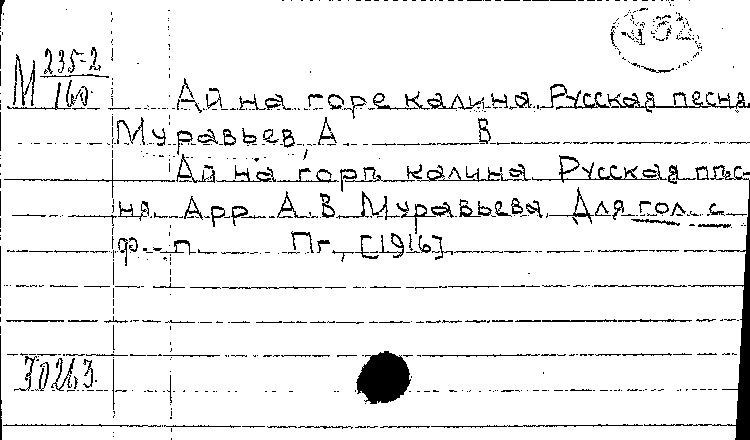 М 235-2
160
Ай на горе калина. Русская песня.
Муравьев, А. В.
Ай на горѣ калина. Русская пѣс-
ня. Арр. А. В. Муравьева. Для гол. с
ф.-п. Пг., [1916].
30263